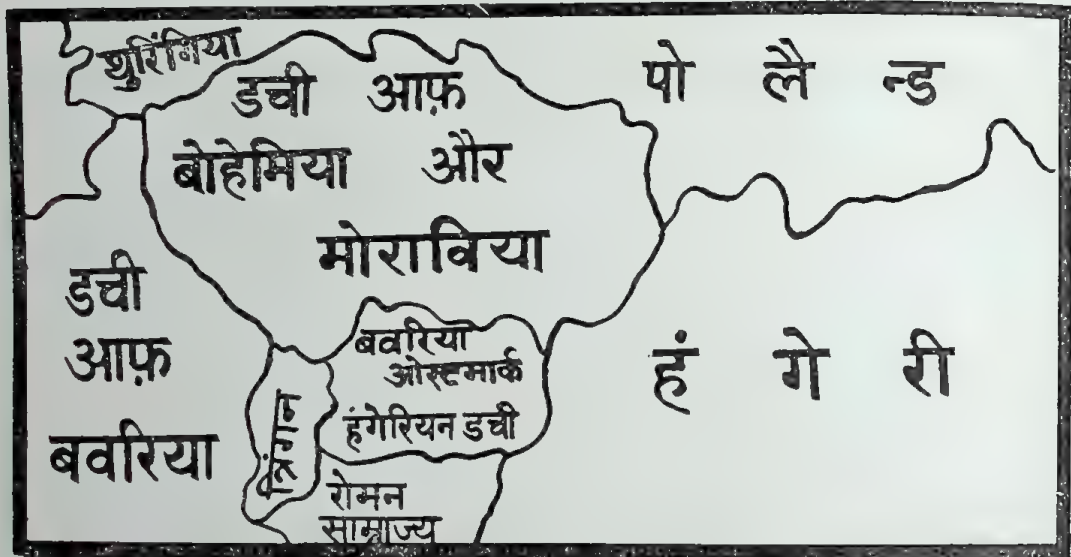 थुरिंगिया
डची आफ़
बोहेमिया और
मोराविया
पो लै न्ड
डची
आफ़
बवरिया
बवरिया
ओस्टमार्क
हंगेरियन डची
हं गे री
रोमन
साम्राज्य